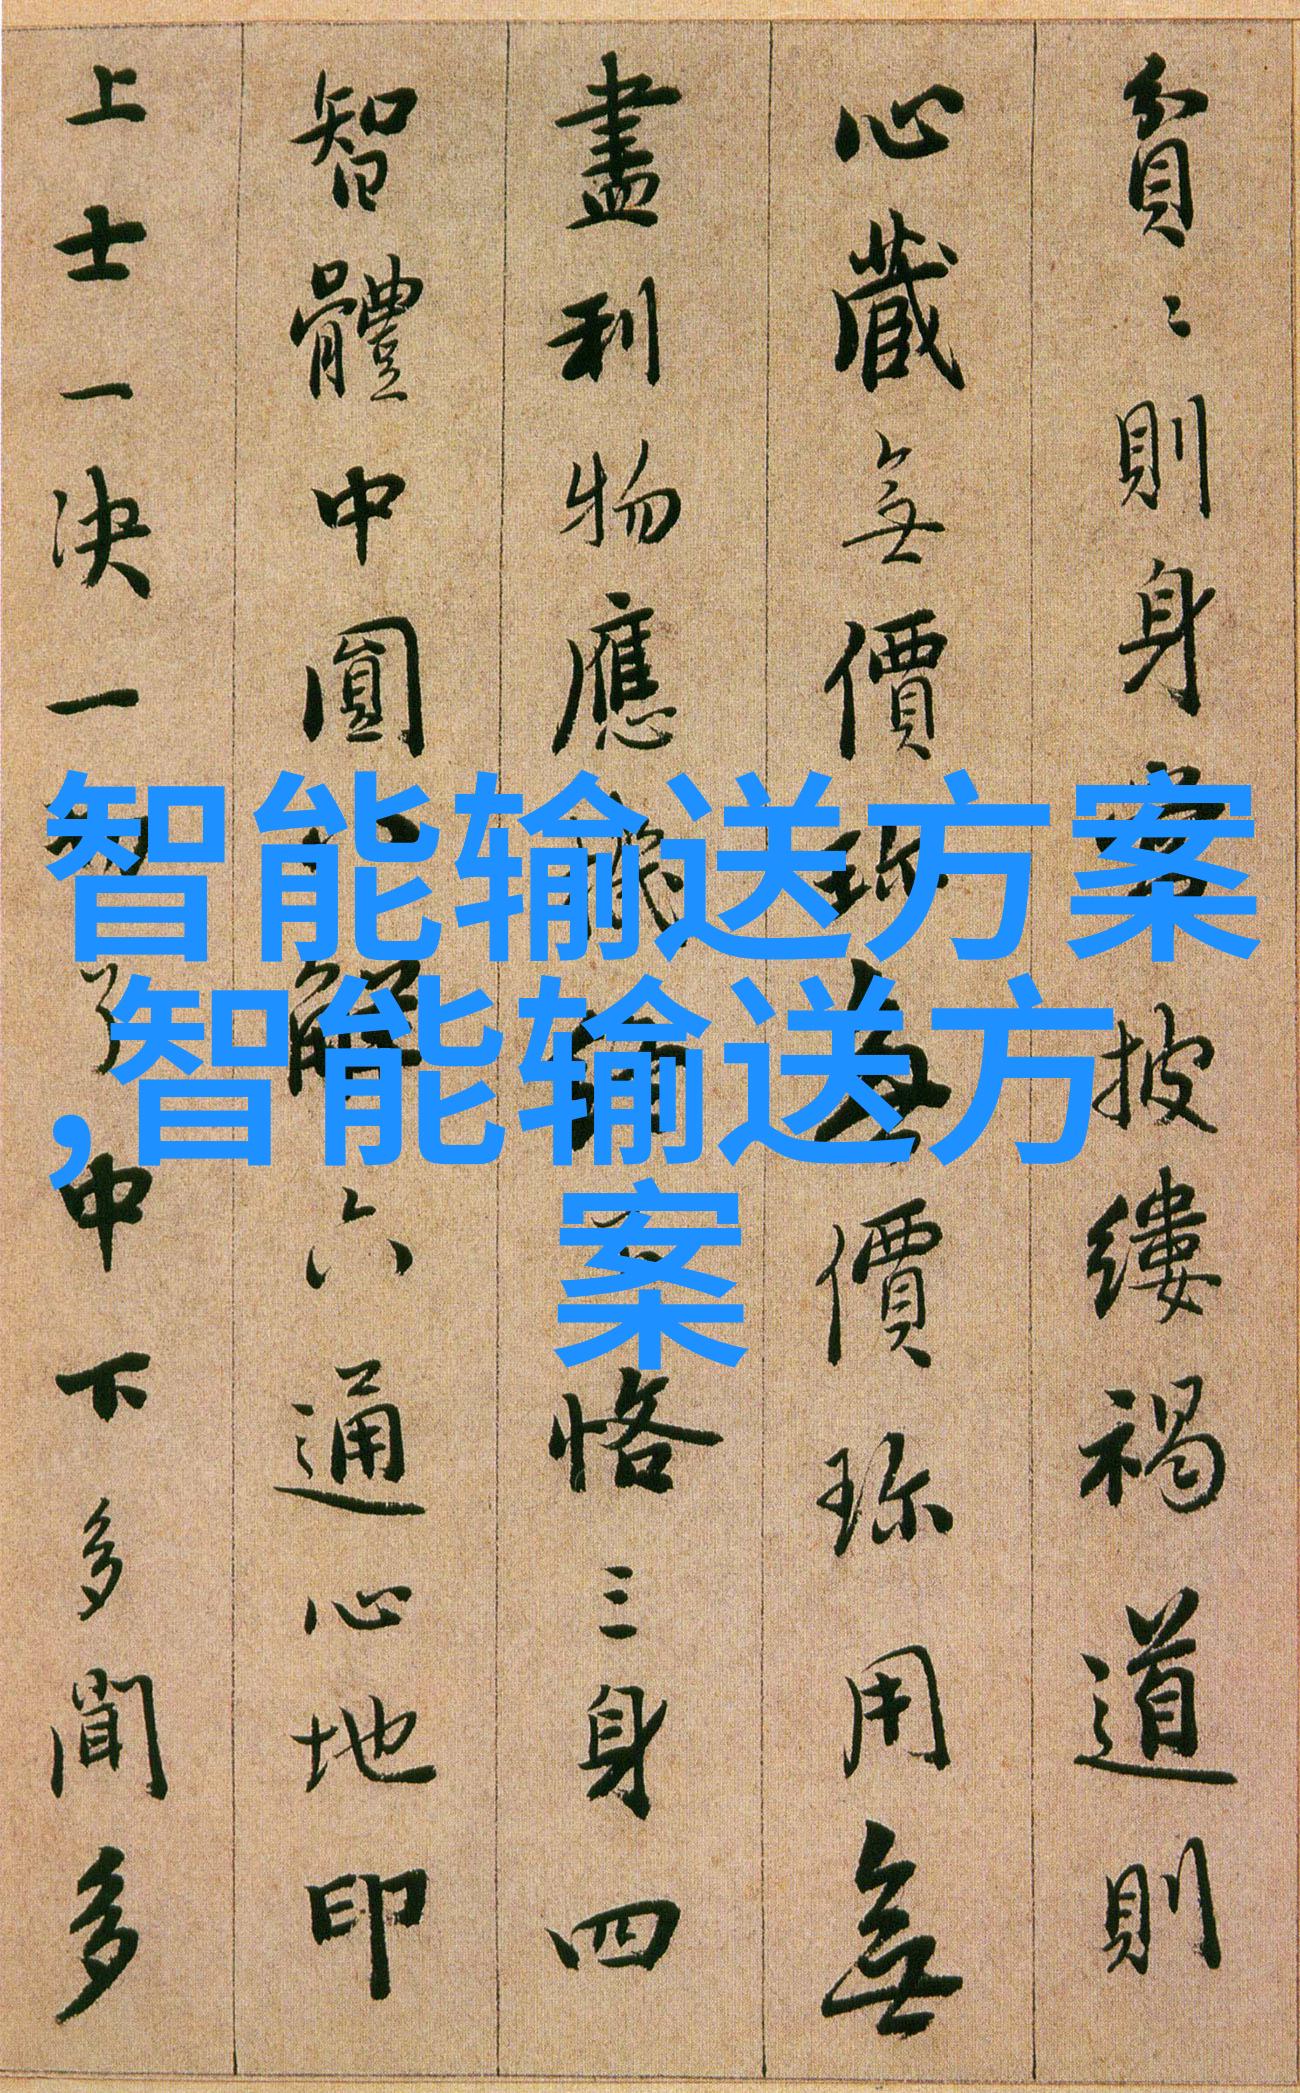 貧〻則身披縷褐道則
心藏無價珍無價珍用無
盡利物應機恪三身四
智體中圓解六通心地印
上士一決一了中下多聞多
智能输送方案
,智能输送方
案